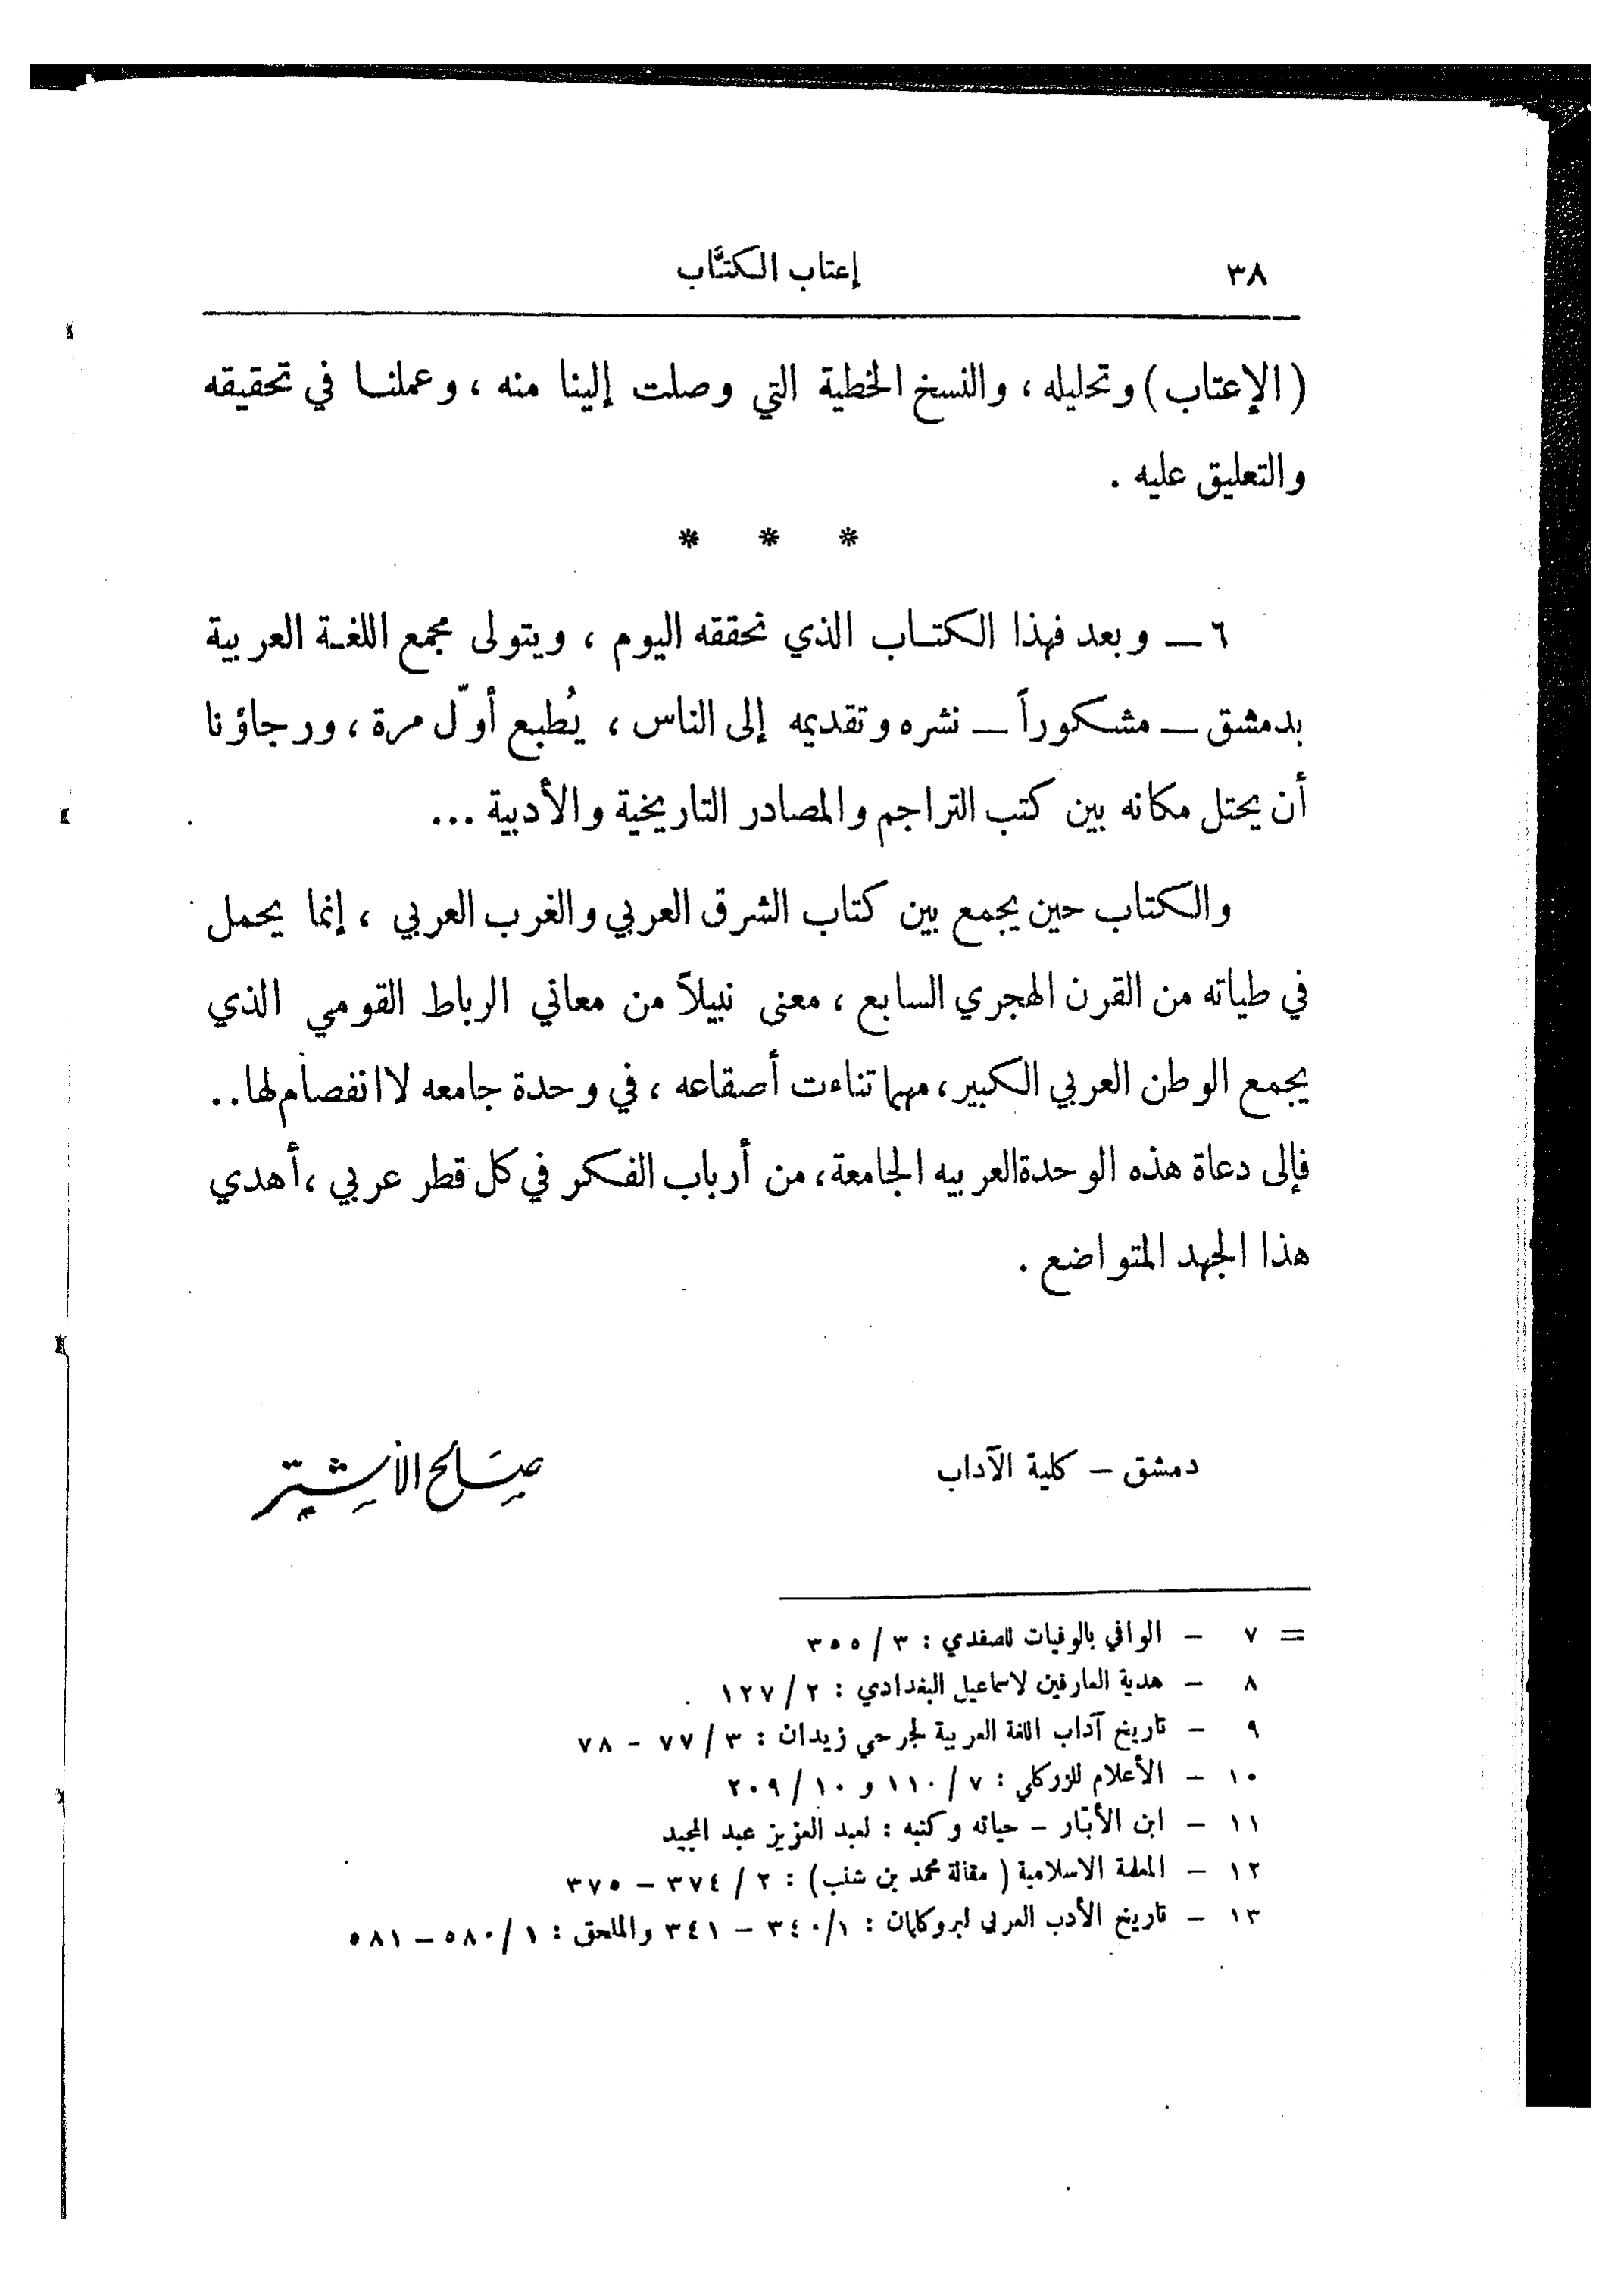 ٣٨ إعتاب الكتّاب
( الإعتاب ) وتحليله ، والنسخ الخطية التي وصلت إلينا منه ، وعملنا في تحقيقه
والتعليق عليه .
* * *
٦ ــ وبعد فهذا الكتاب الذي نحققه اليوم ، ويتولى مجمع اللغة العربية
بدمشق ــ مشكوراً ــ نشره وتقديمه إلى الناس ، يُطبع أوّل مرة ، ورجاؤنا
أن يحتل مكانه بين كتب التراجم والمصادر التاريخية والأدبية ...
والكتاب حين يجمع بين كتاب الشرق العربي والغرب العربي ، إنما يحمل
في طياته من القرن الهجري السابع ، معنى نبيلاً من معاني الرباط القومي الذي
يجمع الوطن العربي الكبير ، مهما تناءت أصقاعه ، في وحدة جامعه لا انفصام لها ..
فإلى دعاة هذه الوحدة العربيه الجامعة ، من أرباب الفكر في كل قطر عربي ، أهدي
هذا الجهد المتواضع .
دمشق – كلية الآداب صالح الأشتر
= ٧ – الوافي بالوفيات للصفدي : ٣ / ٣٥٥
٨ – هدية العارفين لاسماعيل البغدادي : ٢ / ١٢٧ .
٩ – تاريخ آداب اللغة العربية لجرحي زيدان : ٣ / ٧٧ – ٧٨
١٠ – الأعلام للزركلي : ٧ / ١١٠ و ١٠ / ٢٠٩
١١ – ابن الأبّار – حياته وكتبه : لعبد العزيز عبد المجيد
١٢ – المعلمة الاسلامية ( مقالة محمد بن شنب ) : ٢ / ٣٧٤ – ٣٧٥
١٣ – تاريخ الأدب العربي لبروكلمان : ١/ ٣٤٠ – ٣٤١ والملحق : ١ / ٥٨٠ – ٥٨١